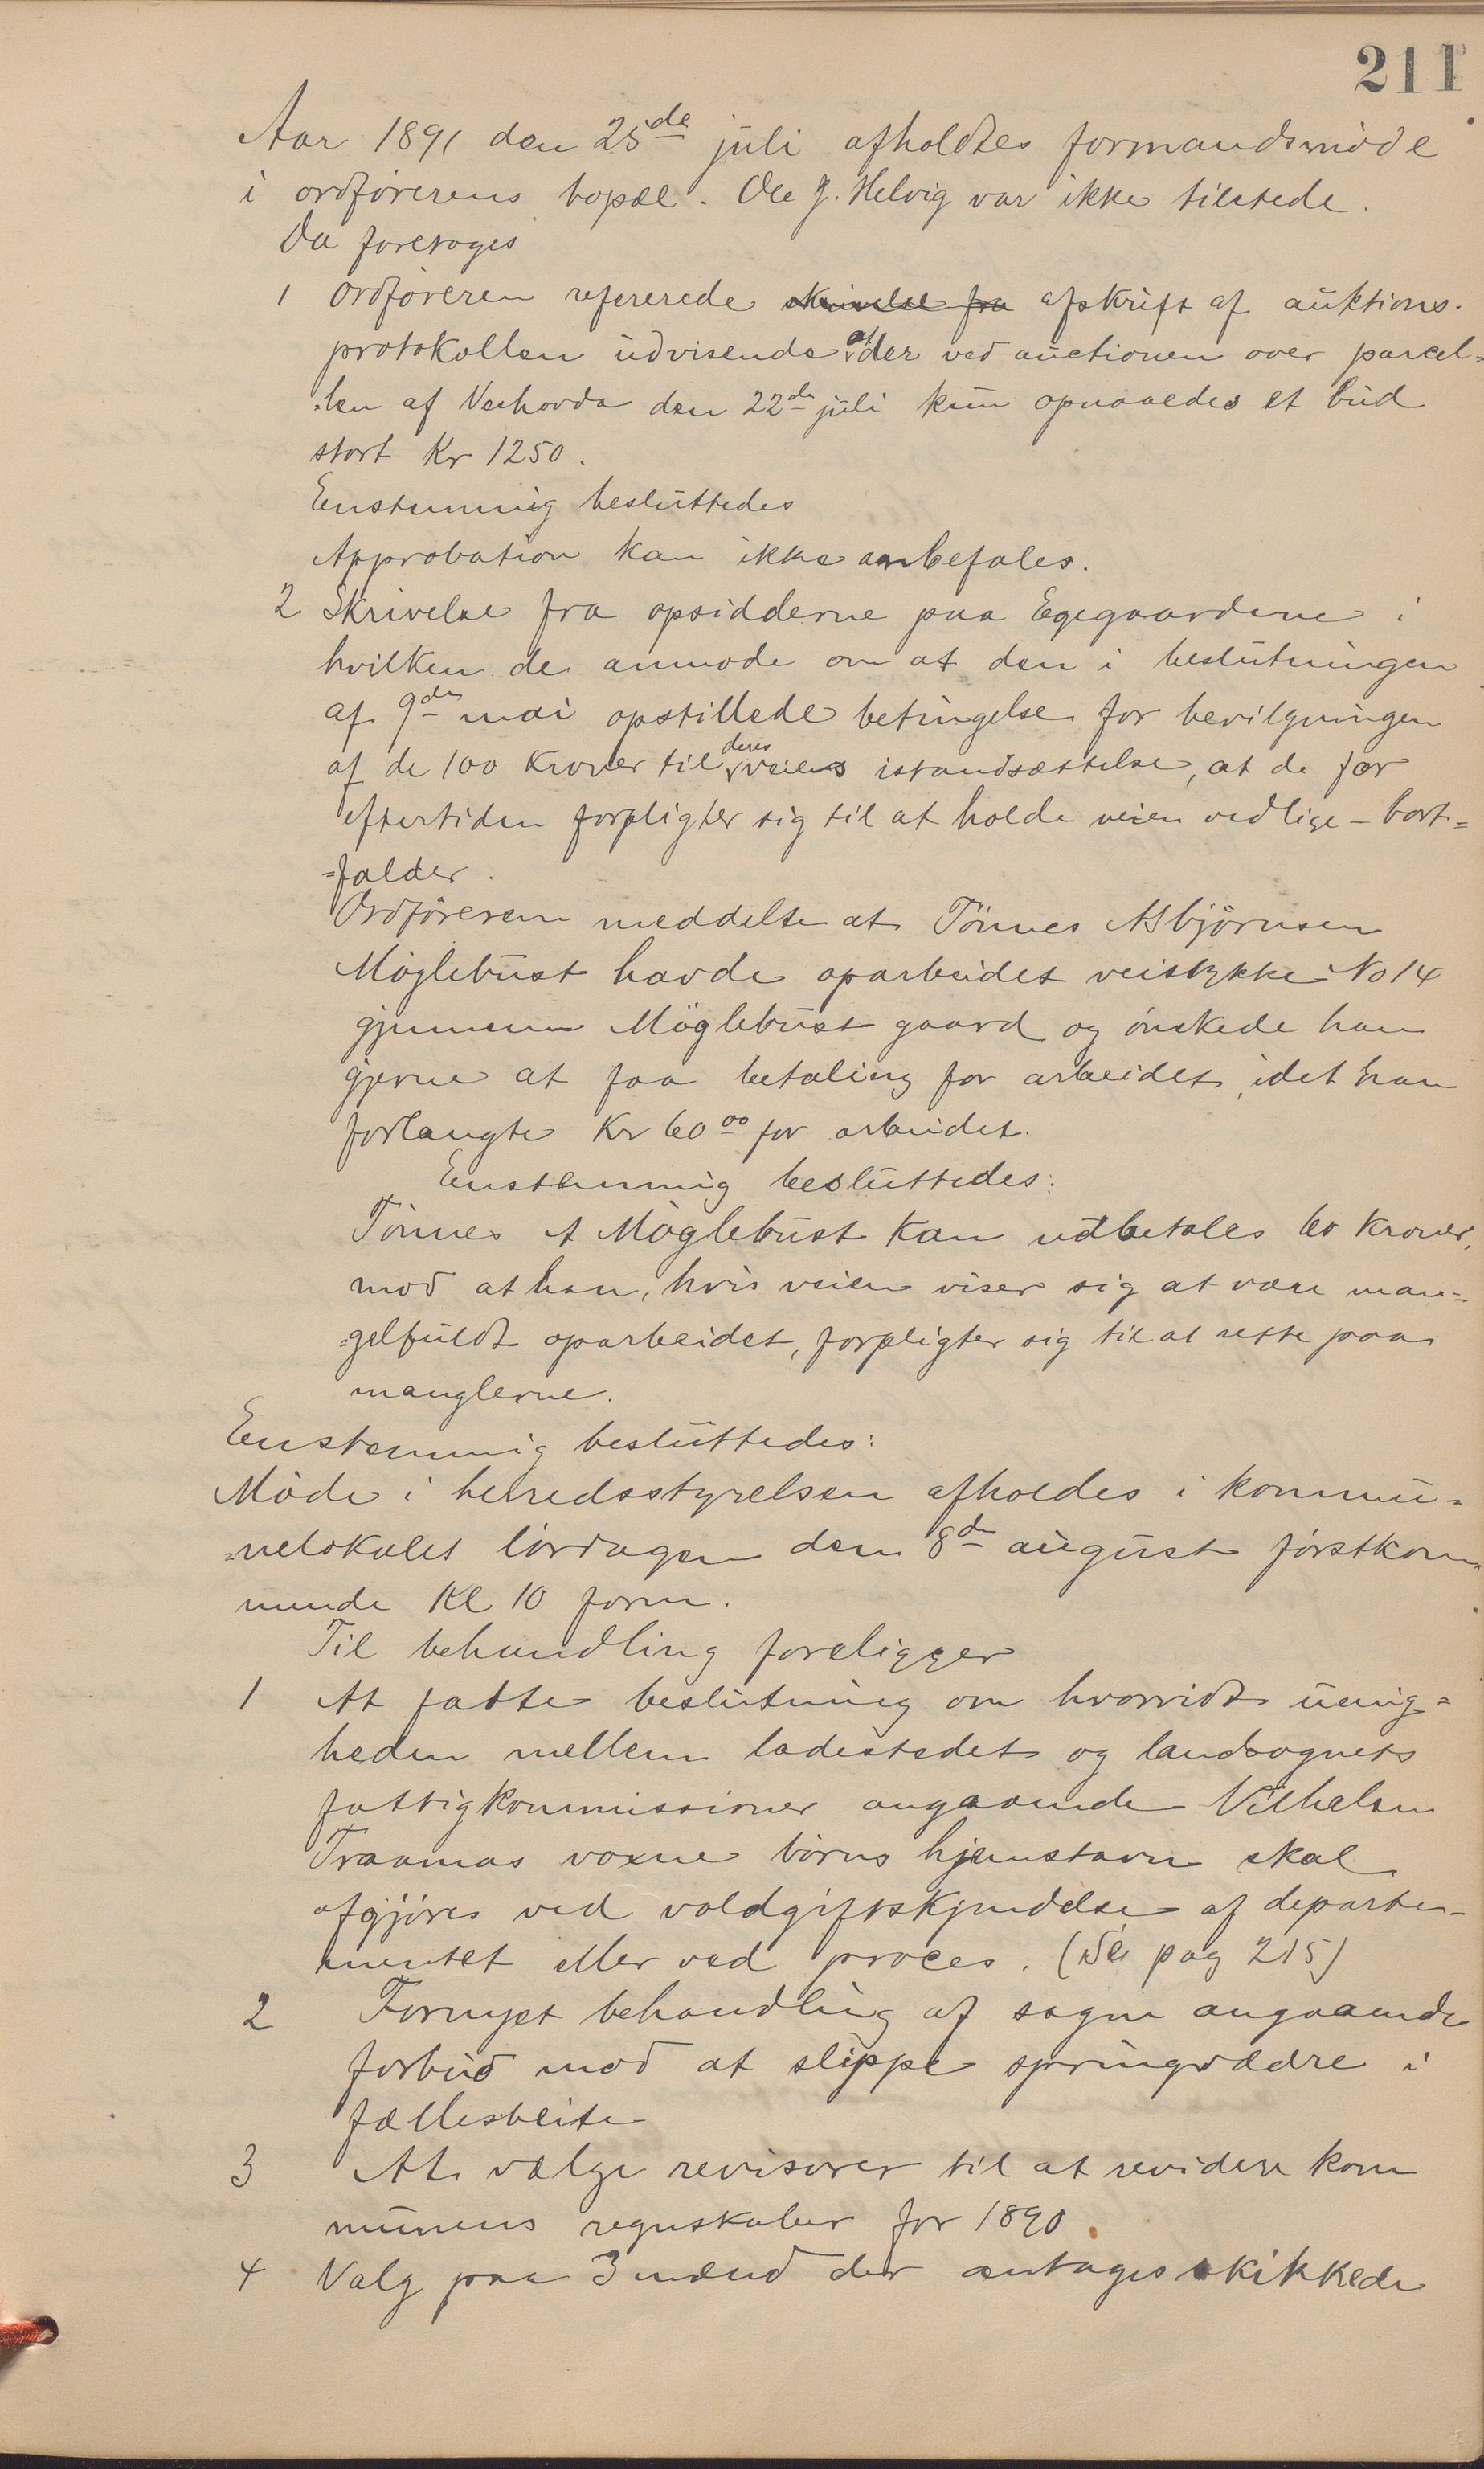 211
Aar 1891 den 25de juli afholdtes formandsmøde
i ordførerens bopæl. Ole J. Helvig var ikke tilstede.
Da foretoges
1 Ordføreren refererede skrivelse fra afskrift af auktions-
protokollen udvisende at der ved auctionen over parcel=
=len af Veshovda den 22de juli kun opnaaedes et bud
stort Kr 1250.
Enstemmig besluttedes
Approbation kan ikke anbefales.
2 Skrivelse fra opsidderne paa Egegaardene i
hvilken de anmode om at den i beslutningen
af 9de mai opstillede betingelse for bevilgningen
af de 100 Kroner til deres veiens istandsættelse, at de for
eftertiden forpligter sig til at holde veien vedlige - bort=
=falder.
Ordføreren meddelte at Tønnes Asbjørnsen
Møglebust havde oparbeidet veistykke No 14
gjennem Møglebust gaard og ønskede han
gjerne at faa betaling for arbeidet, idet han
forlangte Kr 60 00 for arbeidet.
Enstemmig besluttedes:
Tønnes A Møglebust kan udbetales 60 kroner,
mod at han, hvis veien viser sig at være man=
=gelfuldt oparbeidet, forpligter sig til at rette paa
manglerne.
Enstemmig besluttedes:
Møde i herredsstyrelsen afholdes i kommu=
=nelokalet lørdagen den 8de august førstkom
mende Kl 10 form.
Til behandling foreligger
1 At fatte beslutning om hvorvidt uenig=
heden mellem ladestedet og landsognets
fattigkommissioner angaaende Vilhelm
Traamas voxne børns hjemstavn skal
afgjøres ved voldgiftskjendelse af departe-
mentet eller ved proces. (Se pag 215)
2 Fornyet behandling af sagen angaaende
forbud mod at slippe springvædre i
fællesbeite
3 At vælge revisorer til at revidere kom
munens regnskaber for 1890.
4 Valg paa 3 mænd der antages skikkede